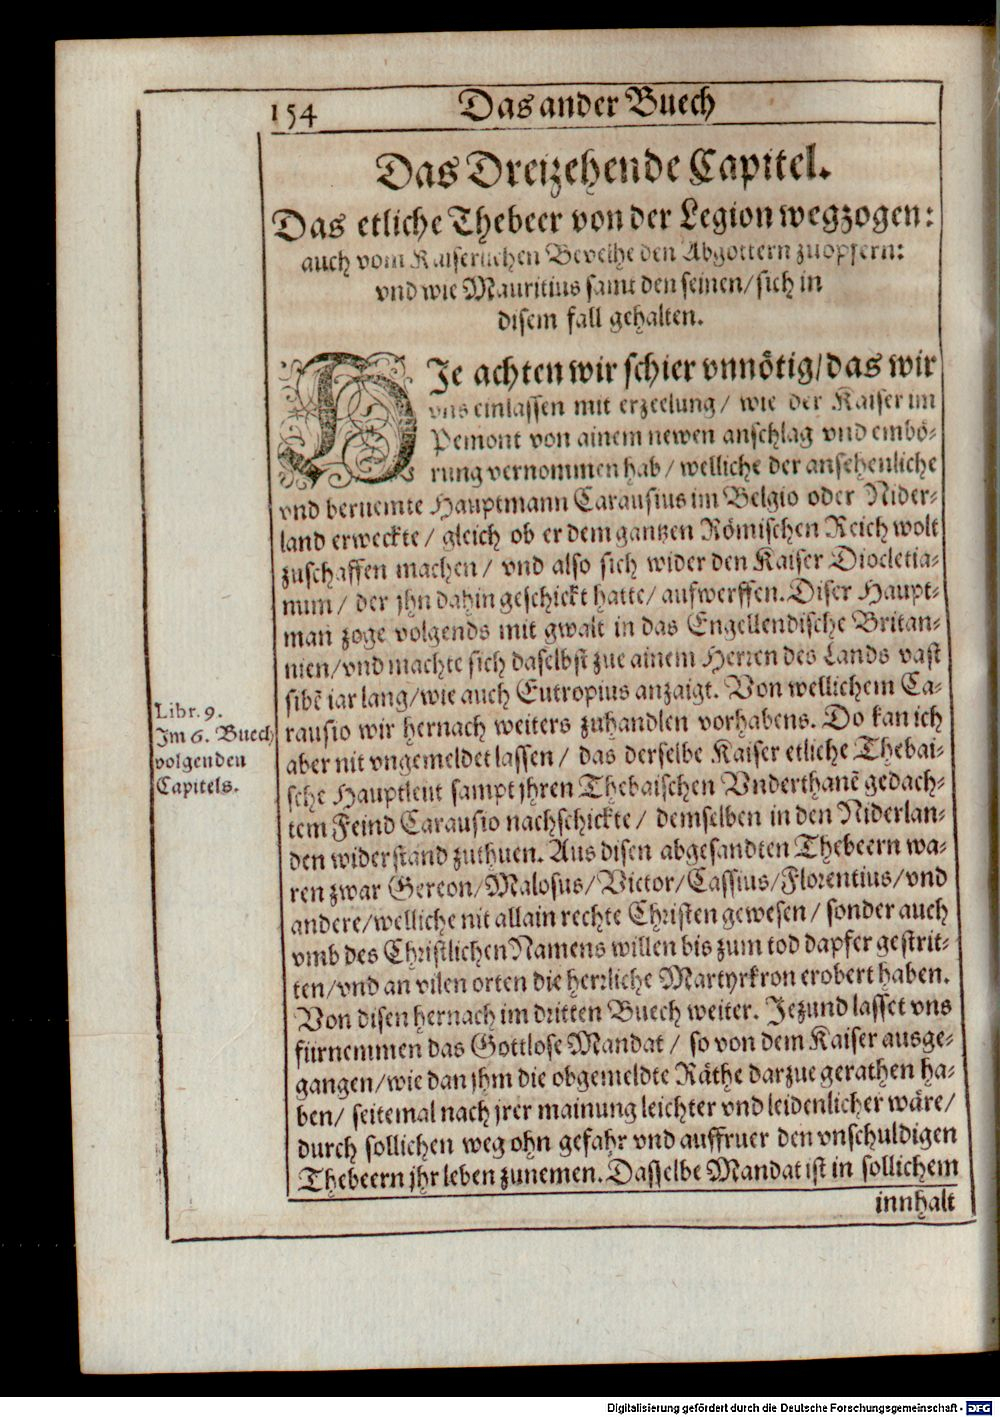 154
Das ander Buech
Das Dreizehende Capitel.
Das etliche Thebeer von der Legion wegzogen:
auch vom Kaiserlichen Bevelhe den Abgöttern zuopfern:
vnd wie Mauritius samt den seinen/ sich in
disem fall gehalten.
HJe achten wir schier vnnötig/ das wir
vns einlassen mit erzeelung/ wie der Kaiser im
Pemont von ainem newen anschlag vnd embö-
rung vernommen hab/ welliche der ansehenliche
vnd beruemte Hauptmann Carausius im Belgio oder Nider-
land erweckte/ gleich ob er dem gantzen Römischen Reich wolt
zuschaffen machen/ vnd also sich wider den Kaiser Diocletia-
num/ der jhn dahin geschickt hatte/ aufwerffen. Diser Haupt-
man zoge volgends mit gwalt in das Engellendische Britan-
nien/ vnd machte sich daselbst zue ainem Herren des Lands vast
sibē iar lang/ wie auch Eutropius anzaigt. Von wellichem Ca-
rausio wir hernach weiters zuhandlen vorhabens. Do kan ich
aber nit vngemeldet lassen/ das derselbe Kaiser etliche Thebai-
sche Hauptleut sampt jhren Thebaischen Vnderthanē gedach-
tem Feind Carausio nachschickte/ demselben in den Niderlan-
den widerstand zuthuen. Aus disen abgesandten Thebeern wa-
ren zwar Gereon/ Malosus/ Victor/ Cassius/ Florentius/ vnd
andere/ welliche nit allain rechte Christen gewesen/ sonder auch
vmb des Christlichen Namens willen bis zum tod dapfer gestrit-
ten/ vnd an vilen orten die herrliche Martyrkron erobert haben.
Von disen hernach im dritten Buech weiter. Jezund lasset vns
fürnemmen das Gottlose Mandat/ so von dem Kaiser ausge-
gangen/ wie dan jhm die obgemeldte Räthe darzue gerathen ha-
ben/ seitemal nach jrer mainung leichter vnd leidenlicher wäre/
durch sollichen weg ohn gefahr vnd auffruer den vnschuldigen
Thebeern jhr leben zunemen. Dasselbe Mandat ist in sollichem
innhalt
Libr. 9.
Jm 6. Buech
volgenden
Capitels.
Digitalisierung gefördert durch die Deutsche Forschungsgemeinschaft - DFG